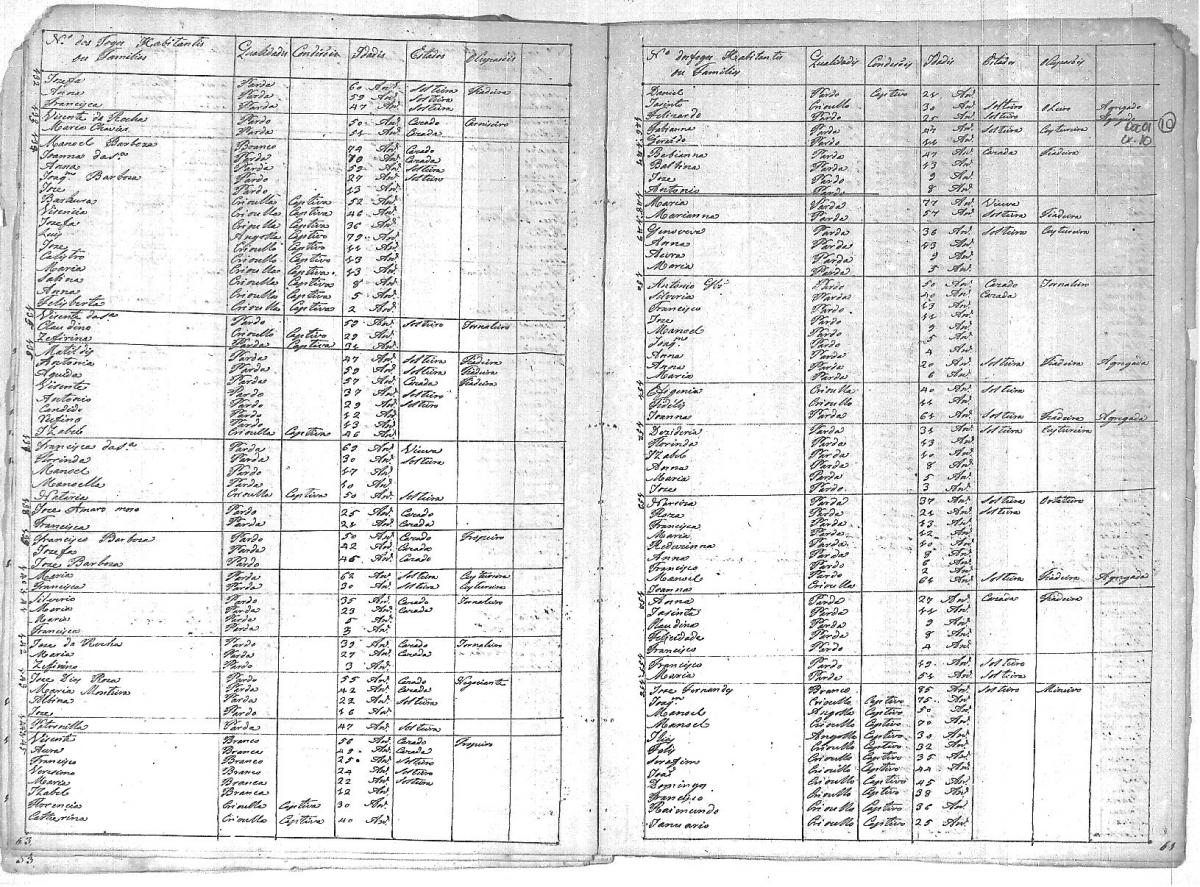 N.º dos Fogos Habitantes Qualidades Condisois Idades Estados Ocupasois
ou Familias
432
Jozefa Parda 60 An.ˢ Solteira Fiadeira
Anna Parda 59 An.ˢ Solteira
Francisca Parda 47 An.ˢ Solteira
433
Vicente da Rocha Pardo 50 An.ˢ Cazado Carniseiro
Maria Chavier Parda An.ˢ Cazada
434
Manoel Barboza Branco 74 An.ˢ Cazado
Joanna da S.ª Parda An.ˢ Cazada
Anna Parda 59 An.ˢ Solteira
Joaq.ᵐ Barboza Pardo 27 An.ˢ Solteiro
Joze Pardo 13 An.ˢ
Barbara Crioulla Captiva 52 An.ˢ
Vicencia Crioulla Captiva 46 An.ˢ
Jozefa Crioulla Captiva 36 An.ˢ
Luis Angolla Captivo 79 An.ˢ
Joze Crioullo Captivo An.ˢ
Calystro Crioullo Captivo 13 An.ˢ
Maria Crioulla Captiva 13 An.ˢ
Sabina Crioulla Captiva 8 An.ˢ
Anna Crioulla Captiva 5 An.ˢ
Felisberta Crioulla Captiva 2 An.ˢ
435
Vicente da S.ª Pardo 59 An.ˢ Solteiro Jornaleiro
Claudino Crioullo Captivo 29 An.ˢ
Zeferina Parda Captiva An.ˢ
436
Matildis Parda 47 An.ˢ Solteira Fiadeira
Antonia Parda 59 An.ˢ Solteira Fiadeira
Aguida Parda 57 An.ˢ Cazada Fiadeira
Vicente Pardo 37 An.ˢ Solteiro
Antonio Pardo 29 An.ˢ Solteiro
Candido Pardo 12 An.ˢ
Rufino Pardo 13 An.ˢ
Izabel Crioulla Captiva 46 An.ˢ
Francisca da S.ª Parda 69 An.ˢ Viuva
Florinda Parda 30 An.ˢ Solteira
Manoel Pardo 17 An.ˢ
Manoella Parda 10 An.ˢ
Nataria Crioulla Captiva 50 An.ˢ Solteira
438
Joze Amaro moso Pardo 25 An.ˢ Cazado
Francisca Parda 21 An.ˢ Cazada
439
Francisco Barboza Pardo 50 An.ˢ Cazado Tropeiro
Jozefa Parda 42 An.ˢ Cazada
Joze Barboza Pardo 46 An.ˢ Cazado
440
Maria Parda 62 An.ˢ Solteira Costureira
Francisca Parda 30 An.ˢ Solteira Costureira
Silverio Pardo 35 An.ˢ Cazado Jornaleiro
Maria Parda 23 An.ˢ Cazada
Maria Parda 5 An.ˢ
Francisca Parda 3 An.ˢ
442
Joze da Rocha Pardo 39 An.ˢ Cazado Jornaleiro
Maria Parda 27 An.ˢ Cazada
Zeferino Pardo 3 An.ˢ
443
Joze Roza Pardo 55 An.ˢ Cazado Negociante
Maria Monteira Parda 42 An.ˢ Cazada
Albina Parda 22 An.ˢ Solteira
Joze Pardo 16 An.ˢ
Petronilla Parda 47 An.ˢ Solteira
Vicente Branco 56 An.ˢ Cazado Tropeiro
Aura Branca 49 An.ˢ Cazada
Francisco Branco 25 An.ˢ Solteiro
Verissimo Branco 24 An.ˢ Solteiro
Maria Branca 22 An.ˢ Solteira
Izabel Branca 12 An.ˢ
Florencia Crioulla Captiva 30 An.ˢ
Catharina Crioulla Captiva 40 An.ˢ
53
53
N.º dos fogos Habitantes Qualidades Condisois Idades Estados Ocupasois
ou Familias
Daniel Pardo Captivo 21 An.ˢ
Jacinto Crioullo 30 An.ˢ Solteiro Oleiro Agregado
Felizardo Pardo 25 An.ˢ Solteiro Agregado
Doc.01
cx.10
10
Fabianna Parda 47 An.ˢ Solteira Costureira
Pardo An.ˢ
Babianna Parda 47 An.ˢ Cazada Fiadeira
Balbina Parda 13 An.ˢ
Joze Pardo 9 An.ˢ
Antonio Pardo 8 An.ˢ
448
Maria Parda 77 An.ˢ Viuva
Marianna Parda 57 An.ˢ Solteira Fiadeira
449
Genoveva Parda 36 An.ˢ Solteira Costureira
Anna Parda 13 An.ˢ
Aura Parda 9 An.ˢ
Maria Parda 5 An.ˢ
Antonio Pardo 50 An.ˢ Cazado Jornaleiro
Silveria Parda 40 An.ˢ Cazada
Francisco Pardo 13 An.ˢ
Joze Pardo An.ˢ
Manoel Pardo 9 An.ˢ
Joaq.ᵐ Pardo 5 An.ˢ
Anna Parda 4 An.ˢ
Anna Parda 20 An.ˢ Solteira Fiadeira Agregada
Maria Parda 6 An.ˢ
Efigenia Crioulla 40 An.ˢ Solteira
Fidelis Crioullo An.ˢ
Joanna Parda 64 An.ˢ Solteira Fiadeira Agregada
Dezideria Parda 31 An.ˢ Solteira Costureira
Florinda Parda 13 An.ˢ
Izabel Parda 10 An.ˢ
Anna Parda 8 An.ˢ
Maria Parda 5 An.ˢ
Joze Pardo 3 An.ˢ
Narciza Parda 37 An.ˢ Solteira
Roza Parda 21 An.ˢ Solteira
Francisca Parda 13 An.ˢ
Maria Parda 12 An.ˢ
Parda 10 An.ˢ
Anna Parda 8 An.ˢ
Francisco Pardo 6 An.ˢ
Manoel Pardo 2 An.ˢ
Joanna Crioulla 64 An.ˢ Solteira Fiadeira Agregada
Anna Parda 27 An.ˢ Cazada Fiadeira
Jacinta Parda An.ˢ
Claudina Parda 9 An.ˢ
Felicidade Parda 8 An.ˢ
Francisco Pardo 4 An.ˢ
Francisco Pardo 49 An.ˢ Solteiro
Maria Parda 51 An.ˢ Solteira
Joze Fernandes Branco 85 An.ˢ Solteiro Mineiro
Joaq.ᵐ Crioullo Captivo 75 An.ˢ
Manoel Angolla Captivo 50 An.ˢ
Manoel Crioullo Captivo 70 An.ˢ
Angolla Captivo 30 An.ˢ
Felis Crioullo Captivo 32 An.ˢ
Serafim Crioullo Captivo 35 An.ˢ
João Crioullo Captivo An.ˢ
Domingos Crioullo Captivo 45 An.ˢ
Francisco Crioullo Captivo 38 An.ˢ
Raimundo Crioullo Captivo 36 An.ˢ
Januario Crioullo Captivo 25 An.ˢ